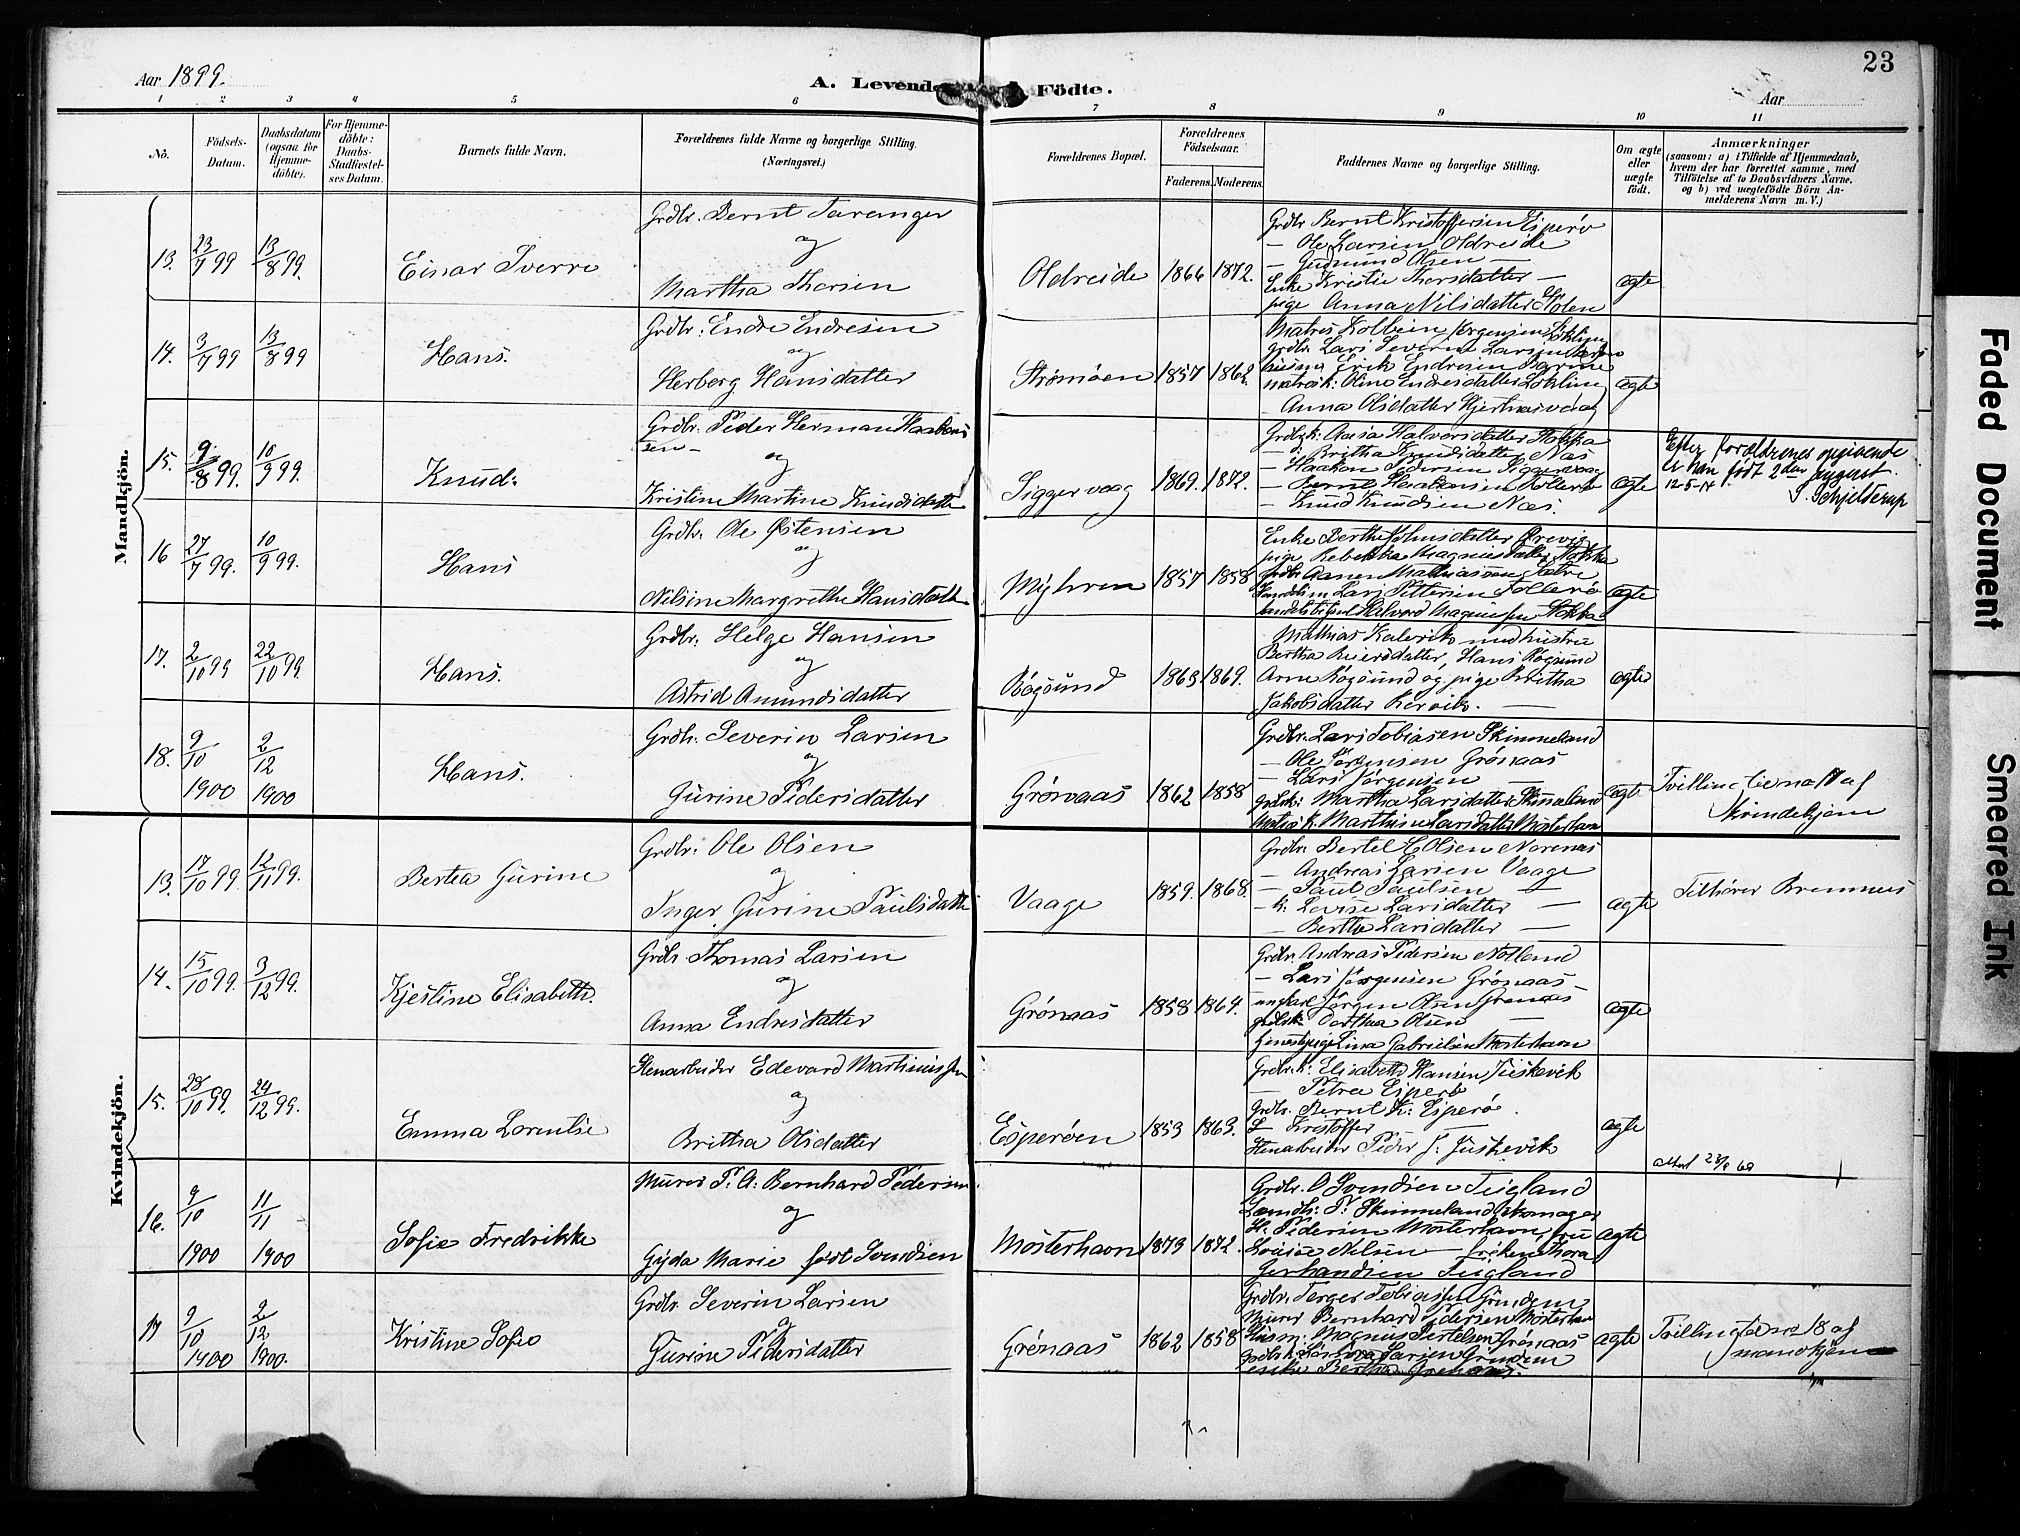 23
Aar 1899.
A. Levende Födte.
Aar
1 2 3 4 5 6 7 8 9 10 11
No.
Födsels-
Datum.
Daabsdatum
(ogsaa for
Hjemme-
döbte).
For Hjemme-
döbte:
Daabs-
Stadfæstel-
ses Datum.
Barnets fulde Navn.
Forældrenes fulde Navne og borgerlige Stilling.
(Næringsvei.)
Forældrenes Bopæl.
Forældrenes
Födselsaar.
Faderens. Moderens.
Faddernes Navne og borgerlige Stilling.
Om ægte
eller
uægte
födt.
Anmærkninger
(saasom: a) i Tilfælde af Hjemmedaab,
hvem der har forrettet samme, med
Tilföielse af to Daabsvidners Navne,
og b) ved uægtefödte Börn An-
melderens Navn m. V.)
Mandkjön.
13. 23/7 99 13/8 99. Einar Sverre
Grdbr. Bernt Taranger
og
Martha Thorsen
Oldreide 1866 1872.
Grdbr Bernt Kristoffersen Esperø
— Ole Larsen Oldreide
— Gudmund Olsen —
Enke Kristie Thorsdatter —
pige Anna Nilsdatter
ægte
14. 3/7 99 13/8 99 Hans.
Grdbr. Endre Endresen
og
Herborg Hansdatter
Strømøen 1857 1862.
Matros Kolbein Jørgensen
grdbr. Lars Severin Larsen
Erik Endresen
matrosk: Oline Endresdatter
Anna Olsdatter Hjertnesvaag
ægte
15. 9/8 99. 10/9 99. Knud.
Grdbr. Peder Herman Haakon-
sen
og
Kristine Martine Knudsdatter
Siggervaag 1869. 1872.
Grdbrk: Halvorsdatter Hokka
— Britha Knudsdatter Næs
— Haakon Pedersen Siggervaag
— Bernt Haakonsen
— Knud Knudsen Næs.
ægte
Efter forældrenes opgivende
er han født 2den august.
12-5-14 S. Schjelderup
16 27/7 99. 10/9 99. Hans
Grdbr. Ole Østensen
og
Nilsine Margrethe Hansdatter
Myhren 1857 1858
Enke Berthe Johnsdatter
pige Rebekka Magnusdatter Hokka
Grdbr. Mathiassen Sætre
Lars Pettersen
Halvord Magnussen Hokka
ægte
17. 2/10 99 22/10 99. Hans.
Grdbr. Helge Hansen
og
Astrid Amundsdatter
Røgsund 1863 1869.
Mathias med hustru
Bertha Reiersdatter, Hans Røgsund
Arne Røgsund og pige Britha
Jakobsdatter
ægte
18. 9/10 1900 2/12 1900 Hans.
Grdbr. Severin Larsen
og
Gurine Pedersdatter
Grønaas 1862 1858
Grdbr. Lars Tobiasen Skimmeland
— Ole Jørgensen Grønaas
— Lars Jørgensen —
grdbrk: Martha Larsdatter Skimmeland
Matrosk. Larsdatter Mosterhavn
ægte
Tvilling til no 17 af
kvindekjøn
Kvindekjön.
13. 17/10 99. 12/11 99. Bertea Gurine
Grdbr. Ole Olsen
og
Inger Gurine Paulsdatter
Vaage 1859. 1868.
Grdbr. Bertel Olsen
— Andreas Larsen Vaage
— Paul Paulsen —
— k: Lovise Larsdatter —
— Berthe Larsdatter —
ægte
Tilhører Bremnes
14. 15/10 99. 3/12 99. Kjestine Elisabeth.
Grdbr. Thomas Larsen
og
Anna Endresdatter
Grønaas 1858 1864.
Grdbr. Andreas Pedersen Notland
— Lars Jørgensen Grønaas
ungkarl Jørgen Olsen Grønaas
grdbrk Dorthea Olsen —
tjenestpige Lina Gabrielsen Mosterhavn
ægte
15. 28/10 99. 24/12 99. Emma Lorentse
Stenarbeider Edevard Martinussen
og
Britha Olsdatter
Esperøen 1853 1863.
Grdbr. k: Elisabeth Hansen
— Petra Esperø
Grdbr. Bernt K: Esperø.
Kristoffer —
Stenarbeider Peder J.
ægte
16. 9/10 1900 11/11 1900 Sofie Fredrikke
Murer P. A. Bernhard Pedersen
og
Gyda Marie født Svendsen
Mosterhavn 1873 1872.
Grdbr. O Svendsen Teigland
Landh. P. Skimmeland, skomager
H. Pedersen Mosterhavn, fru
Lovise Nilsen — frøken Thora
Gerhardsen Teigland
ægte
17 9/10 1900 2/12 1900. Kristine Sofie
Grdbr. Severin Larsen
og
Gurine Pedersdatter
Grønaas 1862 1858
Grdbr. Torger Tobiassen
Murer Bernhard Pedersen Mosterhavn
Husm. Magnus Bertelsen Grønaas
grdbrk: Larsen
enke Bertha
ægte
Tvilling til no 18 af
mandkjøn
Faded Document
Smeared Ink